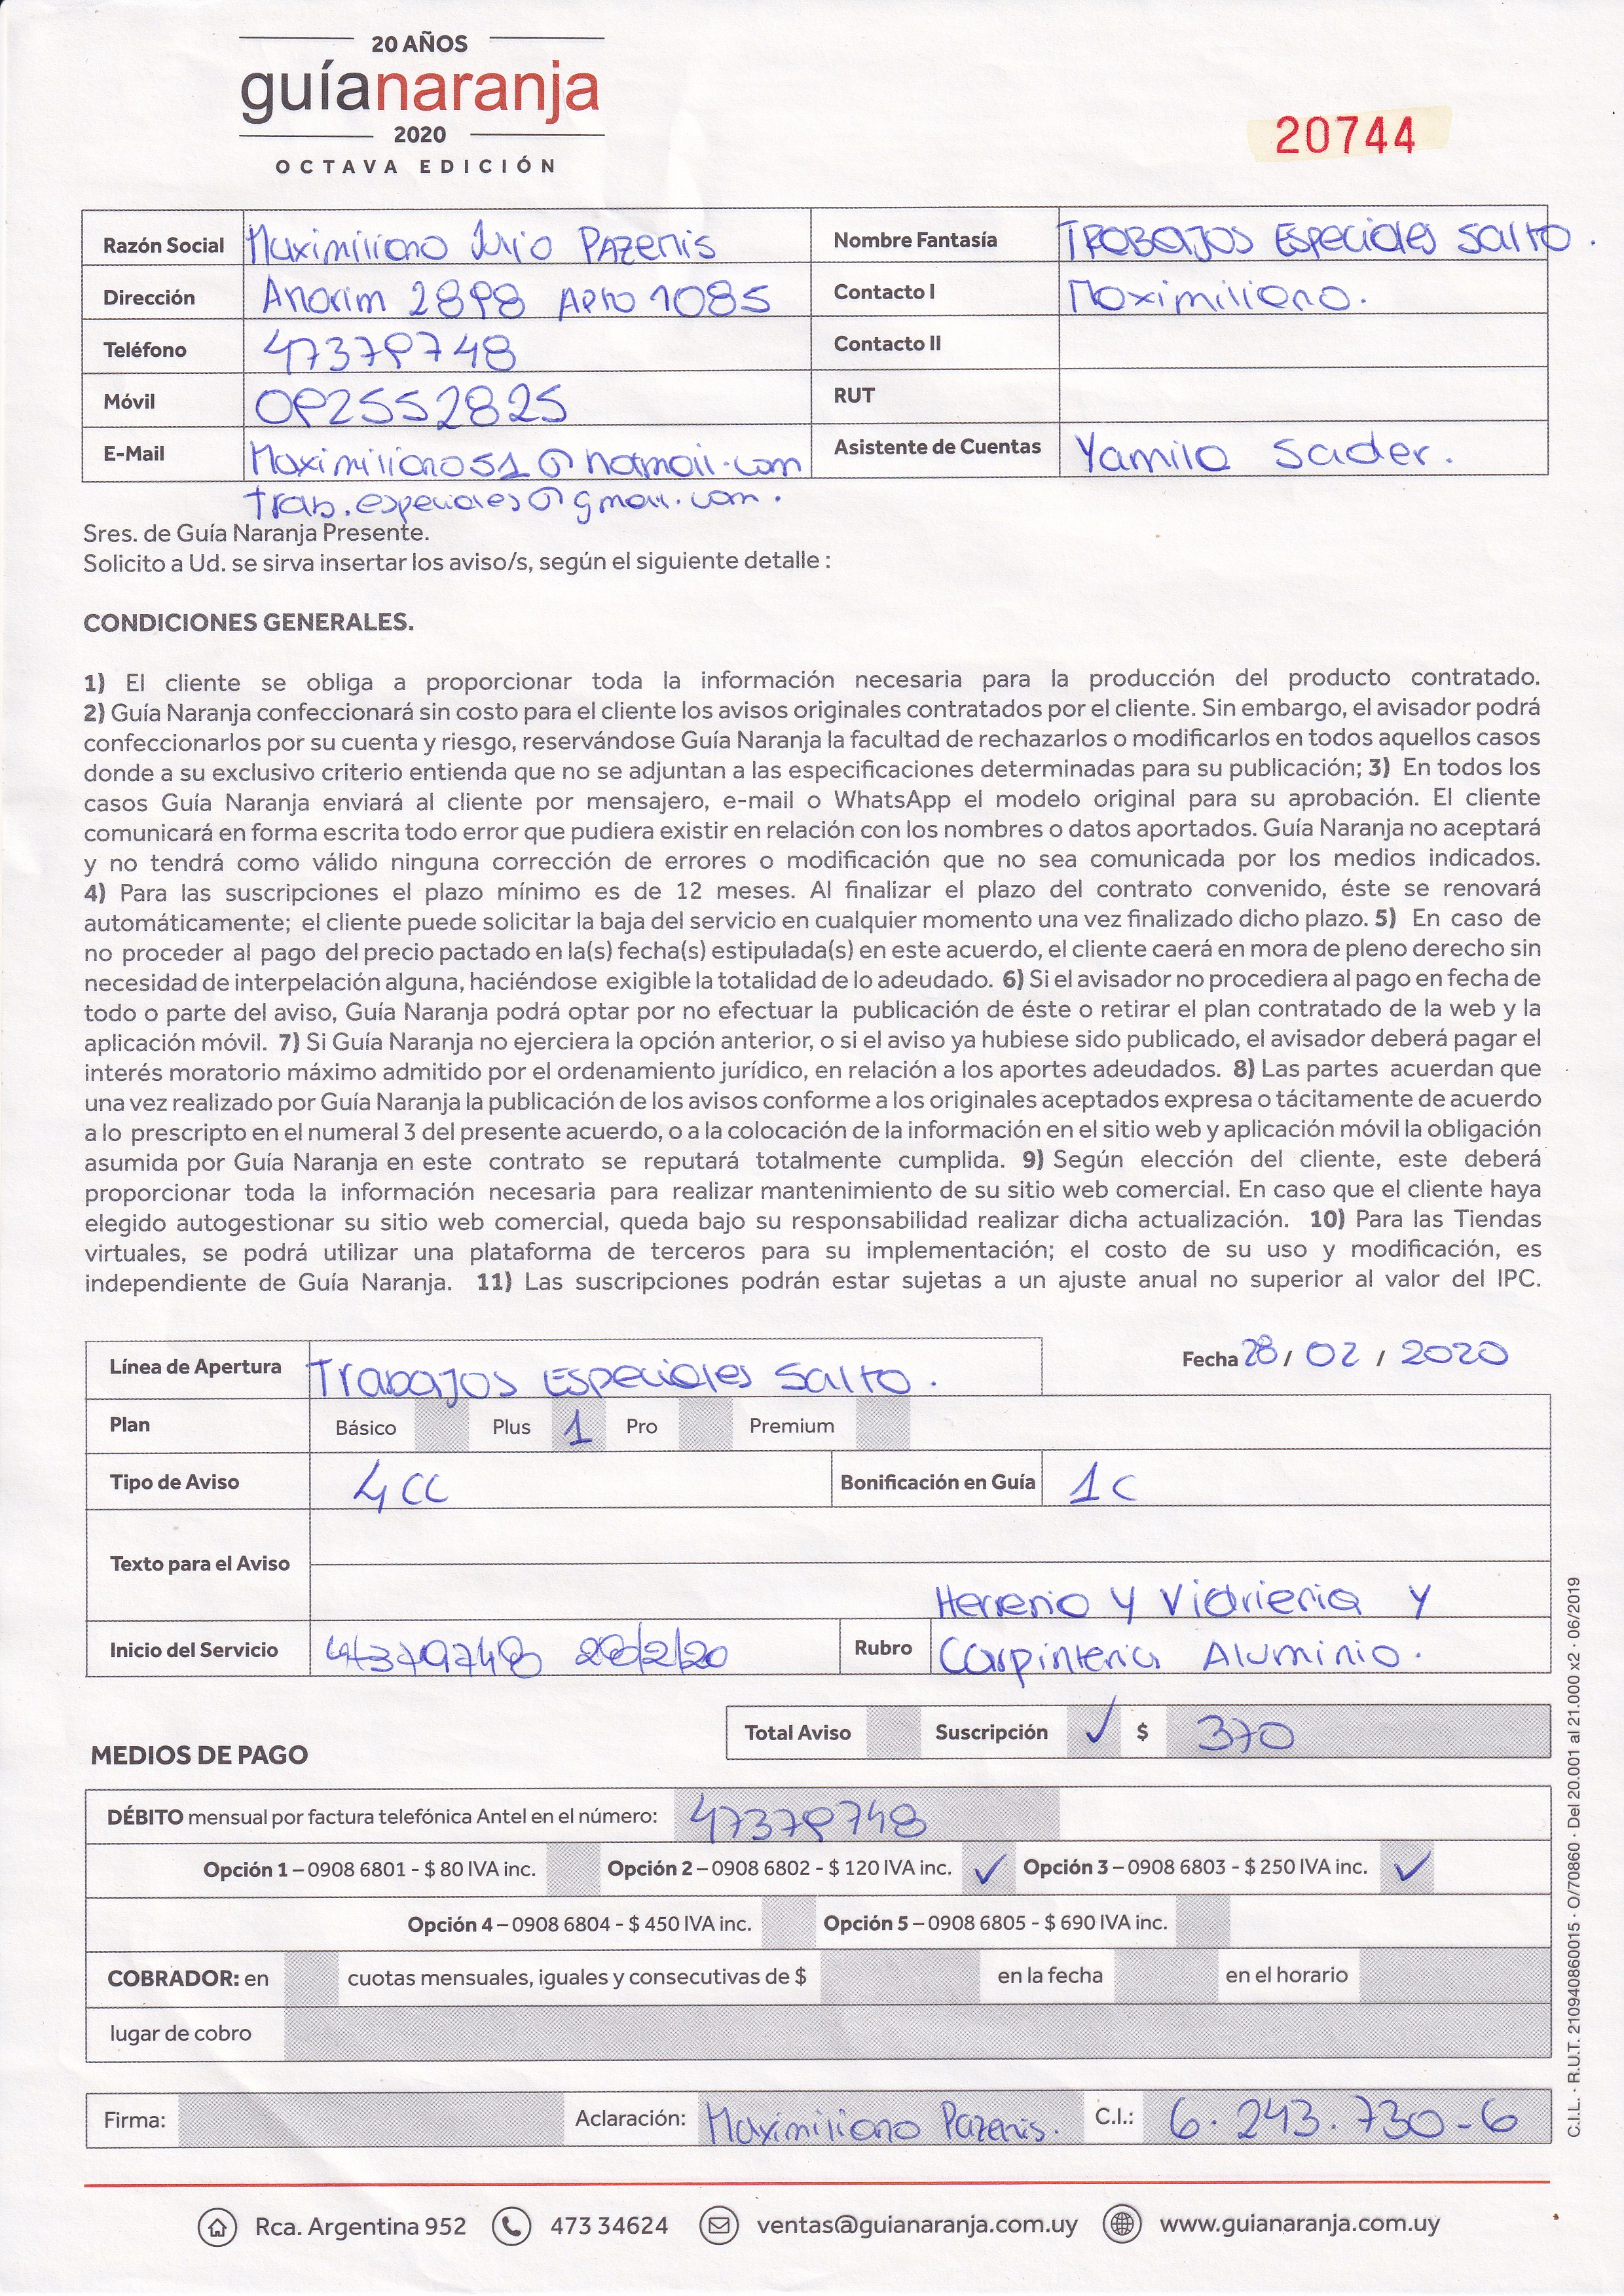 20 AÑOS
guíanaranja
2020
OCTAVA EDICIÓN
20744
Razón Social Maximiliano Julio Pazenis Nombre Fantasía TRABAJOS ESPECIALES SALTO.
Dirección Amorim 2898 Apto 1085 Contacto I Maximiliano.
Teléfono 47379748 Contacto II
Móvil 092552825 RUT
E-Mail Maximiliano51@hotmail.com Asistente de Cuentas Yamila Sader.
trab.especiales@gmail.com.
Sres. de Guía Naranja Presente.
Solicito a Ud. se sirva insertar los aviso/s, según el siguiente detalle :
CONDICIONES GENERALES.
1) El cliente se obliga a proporcionar toda la información necesaria para la producción del producto contratado.
2) Guía Naranja confeccionará sin costo para el cliente los avisos originales contratados por el cliente. Sin embargo, el avisador podrá
confeccionarlos por su cuenta y riesgo, reservándose Guía Naranja la facultad de rechazarlos o modificarlos en todos aquellos casos
donde a su exclusivo criterio entienda que no se adjuntan a las especificaciones determinadas para su publicación; 3) En todos los
casos Guía Naranja enviará al cliente por mensajero, e-mail o WhatsApp el modelo original para su aprobación. El cliente
comunicará en forma escrita todo error que pudiera existir en relación con los nombres o datos aportados. Guía Naranja no aceptará
y no tendrá como válido ninguna corrección de errores o modificación que no sea comunicada por los medios indicados.
4) Para las suscripciones el plazo mínimo es de 12 meses. Al finalizar el plazo del contrato convenido, éste se renovará
automáticamente; el cliente puede solicitar la baja del servicio en cualquier momento una vez finalizado dicho plazo. 5) En caso de
no proceder al pago del precio pactado en la(s) fecha(s) estipulada(s) en este acuerdo, el cliente caerá en mora de pleno derecho sin
necesidad de interpelación alguna, haciéndose exigible la totalidad de lo adeudado. 6) Si el avisador no procediera al pago en fecha de
todo o parte del aviso, Guía Naranja podrá optar por no efectuar la publicación de éste o retirar el plan contratado de la web y la
aplicación móvil. 7) Si Guía Naranja no ejerciera la opción anterior, o si el aviso ya hubiese sido publicado, el avisador deberá pagar el
interés moratorio máximo admitido por el ordenamiento jurídico, en relación a los aportes adeudados. 8) Las partes acuerdan que
una vez realizado por Guía Naranja la publicación de los avisos conforme a los originales aceptados expresa o tácitamente de acuerdo
a lo prescripto en el numeral 3 del presente acuerdo, o a la colocación de la información en el sitio web y aplicación móvil la obligación
asumida por Guía Naranja en este contrato se reputará totalmente cumplida. 9) Según elección del cliente, este deberá
proporcionar toda la información necesaria para realizar mantenimiento de su sitio web comercial. En caso que el cliente haya
elegido autogestionar su sitio web comercial, queda bajo su responsabilidad realizar dicha actualización. 10) Para las Tiendas
virtuales, se podrá utilizar una plataforma de terceros para su implementación; el costo de su uso y modificación, es
independiente de Guía Naranja. 11) Las suscripciones podrán estar sujetas a un ajuste anual no superior al valor del IPC.
Línea de Apertura Trabajos Especiales Salto. Fecha 28/ 02 / 2020
Plan Básico Plus 1 Pro Premium
Tipo de Aviso 4CC Bonificación en Guía 1C
Texto para el Aviso
Herreria y Vidrieria y
Inicio del Servicio 47379748 28/2/20 Rubro Carpinteria Aluminio.
Total Aviso Suscripción ✓ $ 370
MEDIOS DE PAGO
DÉBITO mensual por factura telefónica Antel en el número: 47379748
Opción 1 – 0908 6801 - $ 80 IVA inc. Opción 2 – 0908 6802 - $ 120 IVA inc. ✓ Opción 3 – 0908 6803 - $ 250 IVA inc. ✓
Opción 4 – 0908 6804 - $ 450 IVA inc. Opción 5 – 0908 6805 - $ 690 IVA inc.
COBRADOR: en cuotas mensuales, iguales y consecutivas de $ en la fecha en el horario
lugar de cobro
Firma: Aclaración: Maximiliano Pazenis. C.I.: 6.243.730-6
Rca. Argentina 952 473 34624 ventas@guianaranja.com.uy www.guianaranja.com.uy
C.I.L. · R.U.T. 210940860015 · O/70860 · Del 20.001 al 21.000 x2 · 06/2019